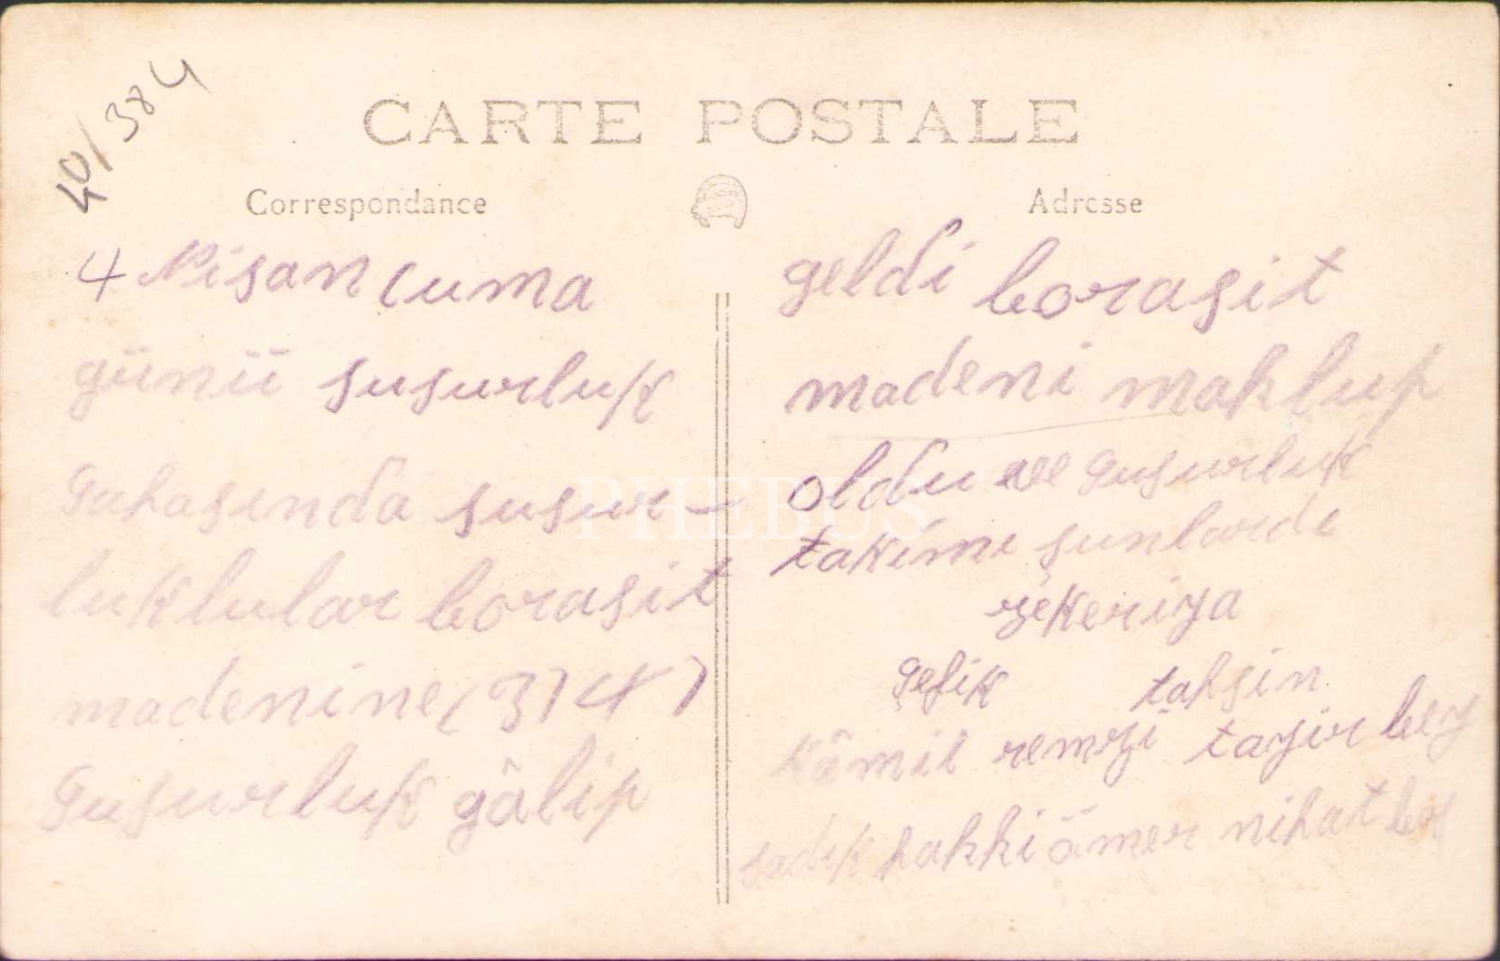 40/384
CARTE POSTALE
Correspondance
Adresse
4 Nisan cuma
günü susurluk
sahasında susur-
luklular borasit
madenine (3)4()
susurluk gâlip
geldi borasit
madeni mahlup
oldu ve susurluk
takımı şunlardı
zekeriya
şefik tahsin
kâmil remzi tayir bey
sadık hakki ömer nihat bey
PHEBUS